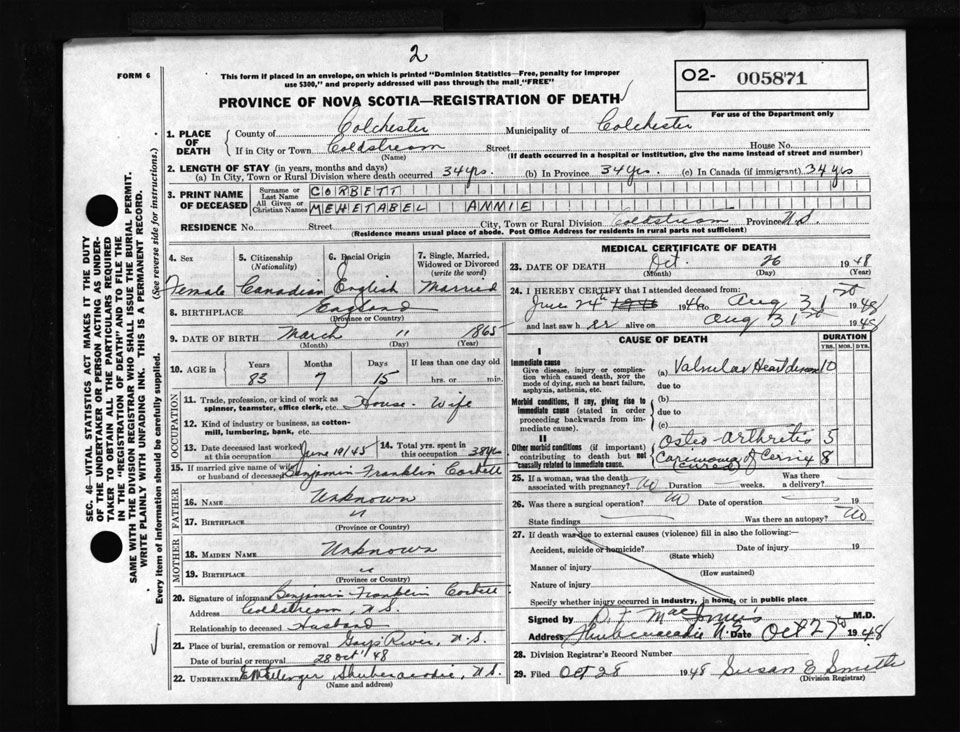 2
FORM 6
This form if placed in an envelope, on which is printed "Dominion Statistics—Free, penalty for improper
use $300," and properly addressed will pass through the mail "FREE"
O2- 005871
For use of the Department only
PROVINCE OF NOVA SCOTIA—REGISTRATION OF DEATH
1. PLACE OF DEATH
County of Colchester Municipality of Colchester
If in City or Town Coldstream Street House No.
(Name) (If death occurred in a hospital or institution, give the name instead of street and number)
2. LENGTH OF STAY (in years, months and days)
(a) In City, Town or Rural Division where death occurred 34 yrs. (b) In Province 34 yrs. (c) In Canada (if immigrant) 34 yrs
3. PRINT NAME OF DECEASED
Surname or Last Name CORBETT
All Given or Christian Names MEHETABEL ANNIE
RESIDENCE No. Street City, Town or Rural Division Coldstream Province N.S.
(Residence means usual place of abode. Post Office Address for residents in rural parts not sufficient)
4. Sex
Female
5. Citizenship (Nationality)
Canadian
6. Racial Origin
English
7. Single, Married, Widowed or Divorced (write the word)
Married
8. BIRTHPLACE England
(Province or Country)
9. DATE OF BIRTH March 11 1865
(Month) (Day) (Year)
10. AGE in Years Months Days If less than one day old
83 7 15 hrs. or min.
OCCUPATION
11. Trade, profession, or kind of work as spinner, teamster, office clerk, etc. House-Wife
12. Kind of industry or business, as cotton-mill, lumbering, bank, etc.
13. Date deceased last worked at this occupation June 10/45
14. Total yrs. spent in this occupation
15. If married give name of wife or husband of deceased Benjamin Franklin Corbett
FATHER
16. NAME Unknown
17. BIRTHPLACE "
(Province or Country)
MOTHER
18. MAIDEN NAME Unknown
19. BIRTHPLACE "
(Province or Country)
20. Signature of informant Benjamin Franklin Corbett
Address Coldstream, N.S.
Relationship to deceased Husband
21. Place of burial, cremation or removal Gays River, N.S.
Date of burial or removal 28 Oct 48
22. UNDERTAKER Shubenacadie, N.S.
(Name and address)
MEDICAL CERTIFICATE OF DEATH
23. DATE OF DEATH Oct. 26 1948
(Month) (Day) (Year)
24. I HEREBY CERTIFY that I attended deceased from:
June 24 1946 1946 to Aug 31st 1948
and last saw her alive on Aug 31st 1948
CAUSE OF DEATH
DURATION
YRS. MOS. DYS.
I
Immediate cause
Give disease, injury or complication which caused death, not the mode of dying, such as heart failure, asphyxia, asthenia, etc.
(a) Valvular Heart disease 10
due to
Morbid conditions, if any, giving rise to immediate cause (stated in order proceeding backwards from immediate cause).
(b)
due to
(c)
II
Other morbid conditions (if important) contributing to death but not causally related to immediate cause.
Osteo-arthritis 5
Carcinoma of Cervix 8
(cured)
25. If a woman, was the death associated with pregnancy? No Duration weeks. Was there a delivery?
26. Was there a surgical operation? No Date of operation 19
State findings Was there an autopsy? No
27. If death was due to external causes (violence) fill in also the following:—
Accident, suicide or homicide? Date of injury 19
(State which)
Manner of injury
(How sustained)
Nature of injury
Specify whether injury occurred in industry, in home, or in public place
Signed by D. F. MacInnis M.D.
Address Shubenacadie N.S. Date Oct 27th 1948
28. Division Registrar's Record Number
29. Filed Oct 28 1948 Susan E Smith
(Division Registrar)
SEC. 46—VITAL STATISTICS ACT MAKES IT THE DUTY
OF THE UNDERTAKER OR PERSON ACTING AS UNDER-
TAKER TO OBTAIN ALL THE PARTICULARS REQUIRED
IN THE "REGISTRATION OF DEATH" AND TO FILE THE
SAME WITH THE DIVISION REGISTRAR WHO SHALL ISSUE THE BURIAL PERMIT.
WRITE PLAINLY WITH UNFADING INK. THIS IS A PERMANENT RECORD.
Every item of information should be carefully supplied. (See reverse side for instructions.)